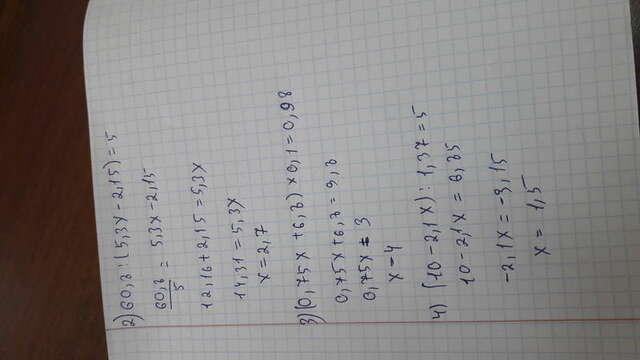 2) 60,8 : (5,3x - 2,15) = 5
60,8/5 = 5,3x - 2,15
12,16 + 2,15 = 5,3x
14,31 = 5,3x
x = 2,7
3) (0,75x + 6,8) × 0,1 = 0,98
0,75x + 6,8 = 9,8
0,75x = 3
x = 4
4) (10 - 2,1x) : 1,37 = 5
10 - 2,1x = 6,85
-2,1x = -3,15
x = 1,5